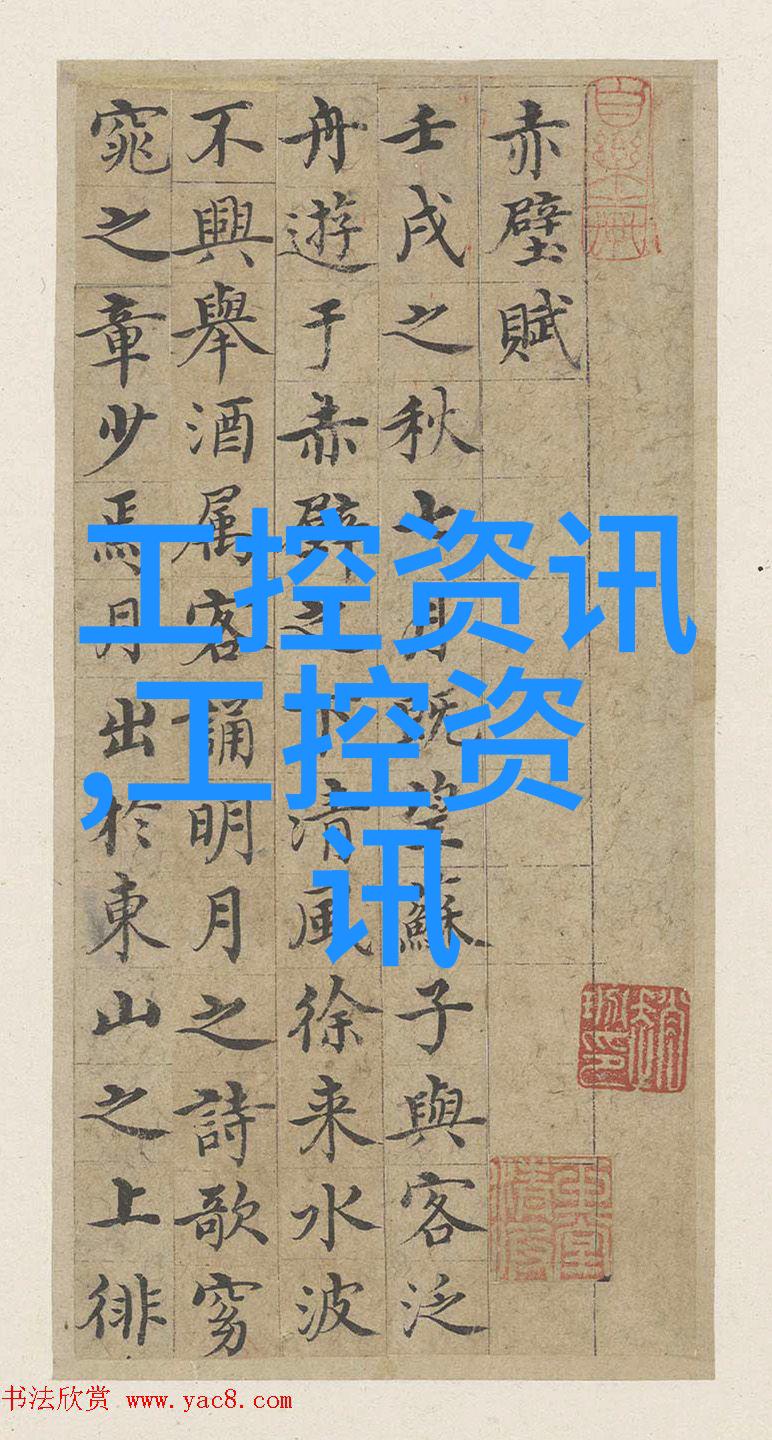 赤壁賦
壬戌之秋七月既望蘇子與客泛
舟遊于赤壁之下清風徐来水波
不興舉酒属客誦明月之詩歌窈
窕之章少焉月出於東山之上徘
工控资讯
,工控资
讯
书法欣赏 www.yac8.com